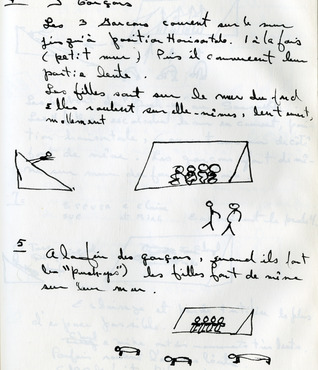 3 Garçons
Les 3 Garcons courent sur le mur
jusqu'à position Horizontale. 1 à la fois
(petit mur) Puis il commencent leur
partie lente.
Les filles sont sur le mur du fond
Elles roulent sur elle-mêmes, lentement,
mollement
5
A la fin des garçons, quand ils font
les "push-ups") les filles font de même
sur leur mur.